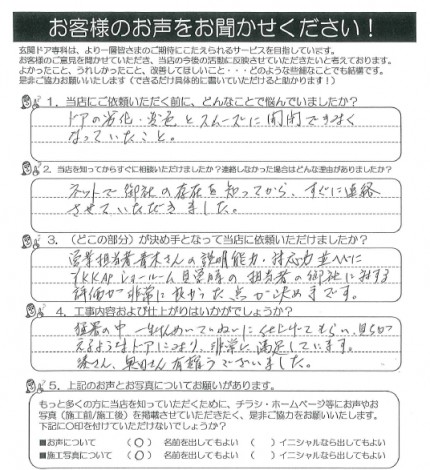 お客様のお声をお聞かせください！
玄関ドア専科は、より一層皆さまのご期待にこたえられるサービスを目指しています。
お客様のご意見を聞かせていただき、当店の今後の活動に反映させていただきたいと考えております。
よかったこと、うれしかったこと、改善してほしいこと・・・どのような些細なことでも結構です。
是非ご協力お願いいたします（できるだけ具体的に書いていただけると助かります！）
1．当店にご依頼いただく前に、どんなことで悩んでいましたか？
ドアの劣化・変色とスムーズに開閉できなく
なっていたこと。
2．当店を知ってからすぐに相談いただけましたか？連絡しなかった場合はどんな理由がありましたか？
ネットで御社の存在を知ってから、すぐに連絡
させていただきました。
3．（どこの部分）が決め手となって当店に依頼いただけましたか？
営業担当者青木さんの説明能力・対応力並びに
YKKAPショールーム見学時の担当者の御社に対する
評価が非常に良かった点が決め手です。
4．工事内容および仕上がりはいかがでしょうか？
猛暑の中、一生けんめいていねいに仕上げてもらい、見ちが
えるようなドアになり、非常に満足しています。
奥田さん有難うございました。
5．上記のお声とお写真についてお願いがあります。
もっと多くの方に当店を知っていただくために、チラシ・ホームページ等にお声やお
写真（施工前/施工後）を掲載させていただきたく、是非ご協力をお願いいたします。
下記に○印を付けていただけないでしょうか？
■お声について （○） 名前を出してもよい （ ） イニシャルなら出してもよい
■施工写真について （○） 名前を出してもよい （ ） イニシャルなら出してもよい